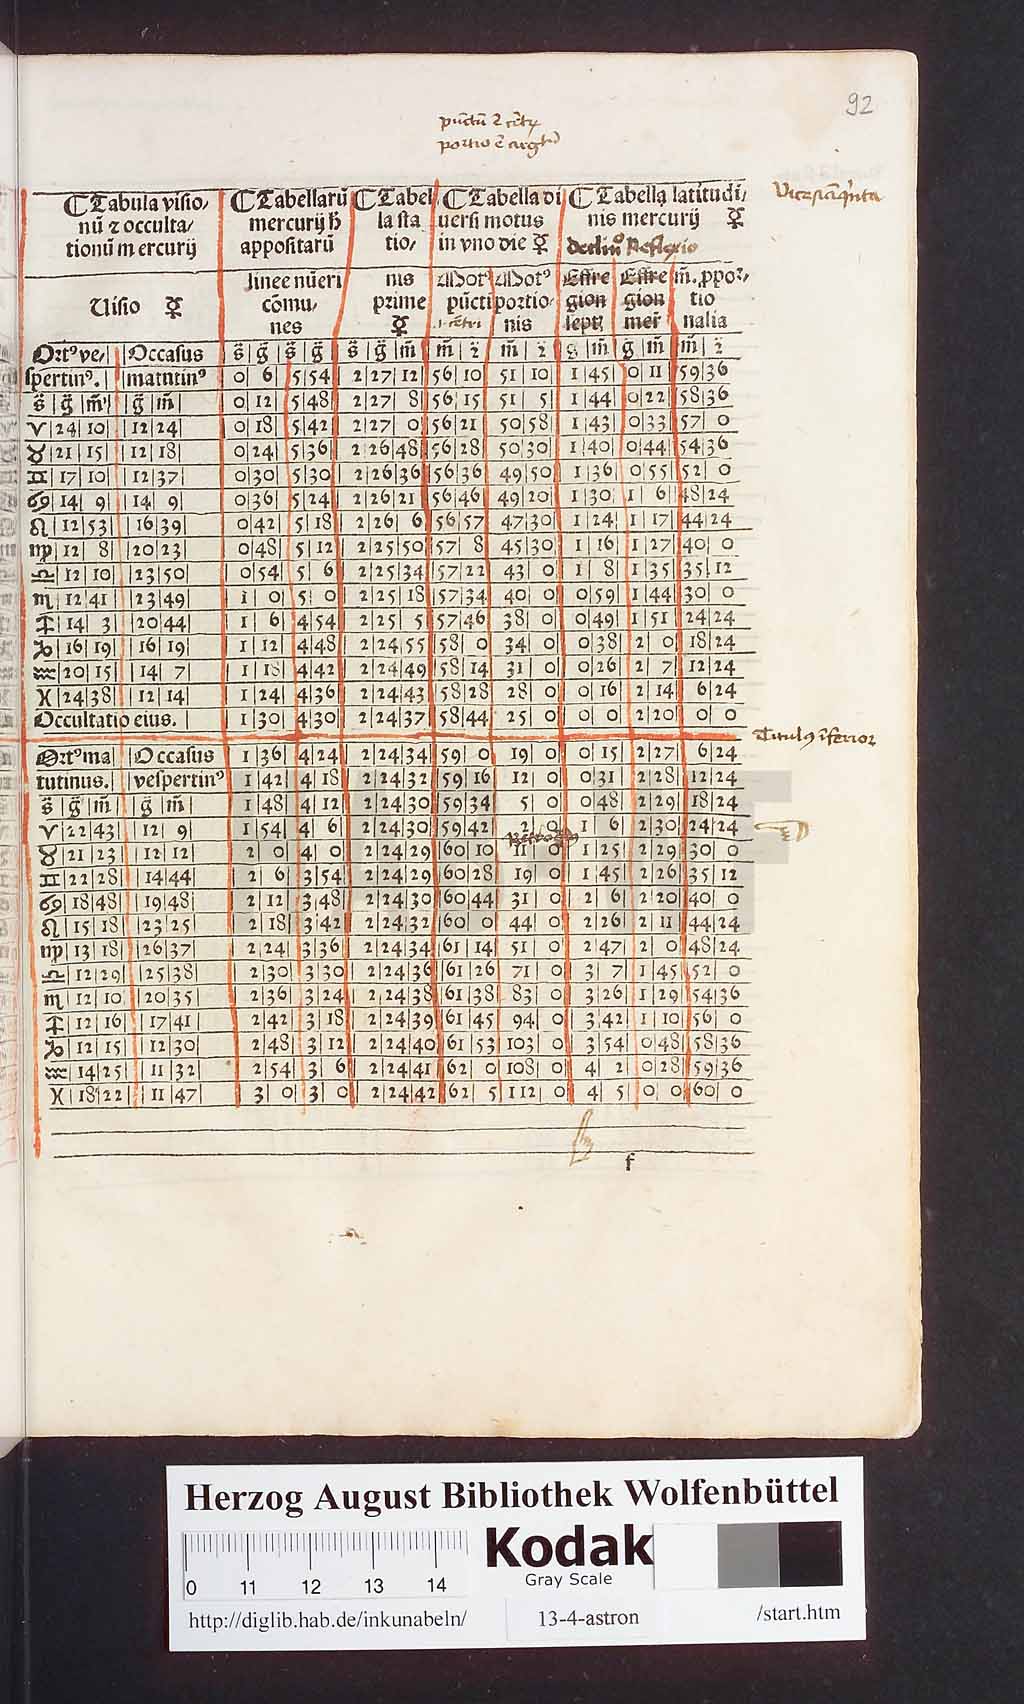 92
Tabula visio, Tabellarū Tabel Tabella di Tabella latitudi,
nū ⁊ occulta/ mercurij ħ la sta uersi motus nis mercurij ☿
tionū mercurij appositarū tio, in vno die ☿
linee nūeri nis Motꝰ Motꝰ Effre Effre m̄. ꝓpor,
Uisio ☿ cōmu, prime pūcti portio gion gion tio
nes ☿ nis septꝰ merꝰ nalia
Ortꝰ ve, | Occasus s̄ | ḡ | s̄ | ḡ s̄ | ḡ | m̄ m̄ | z̄ m̄ | z̄ g | m̄ ḡ | m̄ m̄ | z̄
spertinꝰ. | matutinꝰ 0 | 6 | 5 | 54 2 | 27 | 12 56 | 10 51 | 10 1 | 45 0 | 11 59 | 36
s̄ | ḡ | m̄ | ḡ | m̄ 0 | 12 | 5 | 48 2 | 27 | 8 56 | 15 51 | 5 1 | 44 0 | 22 58 | 36
♈ | 24 | 10 | 12 | 24 0 | 18 | 5 | 42 2 | 27 | 0 56 | 21 50 | 58 1 | 43 0 | 33 57 | 0
♉ | 21 | 15 | 12 | 18 0 | 24 | 5 | 36 2 | 26 | 48 56 | 28 50 | 30 1 | 40 0 | 44 54 | 36
♊ | 17 | 10 | 12 | 37 0 | 30 | 5 | 30 2 | 26 | 36 56 | 36 49 | 50 1 | 36 0 | 55 52 | 0
♋ | 14 | 9 | 14 | 9 0 | 36 | 5 | 24 2 | 26 | 21 56 | 46 49 | 20 1 | 30 1 | 6 48 | 24
♌ | 12 | 53 | 16 | 39 0 | 42 | 5 | 18 2 | 26 | 6 56 | 57 47 | 30 1 | 24 1 | 17 44 | 24
♍ | 12 | 8 | 20 | 23 0 | 48 | 5 | 12 2 | 25 | 50 57 | 8 45 | 30 1 | 16 1 | 27 40 | 0
♎ | 12 | 10 | 23 | 50 0 | 54 | 5 | 6 2 | 25 | 34 57 | 22 43 | 0 1 | 8 1 | 35 35 | 12
♏ | 12 | 41 | 23 | 49 1 | 0 | 5 | 0 2 | 25 | 18 57 | 34 40 | 0 0 | 59 1 | 44 30 | 0
♐ | 14 | 3 | 20 | 44 1 | 6 | 4 | 54 2 | 25 | 5 57 | 46 38 | 0 0 | 49 1 | 51 24 | 24
♑ | 16 | 19 | 16 | 19 1 | 12 | 4 | 48 2 | 24 | 55 58 | 0 34 | 0 0 | 38 2 | 0 18 | 24
♒ | 20 | 15 | 14 | 7 1 | 18 | 4 | 42 2 | 24 | 49 58 | 14 31 | 0 0 | 26 2 | 7 12 | 24
♓ | 24 | 38 | 12 | 14 1 | 24 | 4 | 36 2 | 24 | 43 58 | 28 28 | 0 0 | 16 2 | 14 6 | 24
Occultatio eius. 1 | 30 | 4 | 30 2 | 24 | 37 58 | 44 25 | 0 0 | 0 2 | 20 0 | 0
Titulꝰ īferior
Ortꝰ ma | Occasus 1 | 36 | 4 | 24 2 | 24 | 34 59 | 0 19 | 0 0 | 15 2 | 27 6 | 24
tutinus. | vespertinꝰ 1 | 42 | 4 | 18 2 | 24 | 32 59 | 16 12 | 0 0 | 31 2 | 28 12 | 24
s̄ | ḡ | m̄ | ḡ | m̄ 1 | 48 | 4 | 12 2 | 24 | 30 59 | 34 5 | 0 0 | 48 2 | 29 18 | 24
♈ | 22 | 43 | 12 | 9 1 | 54 | 4 | 6 2 | 24 | 30 59 | 42 2 | 0 1 | 6 2 | 30 24 | 24
♉ | 21 | 23 | 12 | 12 2 | 0 | 4 | 0 2 | 24 | 29 60 | 10 11 | 0 1 | 25 2 | 29 30 | 0
♊ | 22 | 28 | 14 | 44 2 | 6 | 3 | 54 2 | 24 | 29 60 | 28 19 | 0 1 | 45 2 | 26 35 | 12
♋ | 18 | 48 | 19 | 48 2 | 12 | 3 | 48 2 | 24 | 30 60 | 44 31 | 0 2 | 6 2 | 20 40 | 0
♌ | 15 | 18 | 23 | 25 2 | 18 | 3 | 42 2 | 24 | 32 60 | 0 44 | 0 2 | 26 2 | 11 44 | 24
♍ | 13 | 18 | 26 | 37 2 | 24 | 3 | 36 2 | 24 | 34 61 | 14 51 | 0 2 | 47 2 | 0 48 | 24
♎ | 12 | 29 | 25 | 38 2 | 30 | 3 | 30 2 | 24 | 36 61 | 26 71 | 0 3 | 7 1 | 45 52 | 0
♏ | 12 | 10 | 20 | 35 2 | 36 | 3 | 24 2 | 24 | 38 61 | 38 83 | 0 3 | 26 1 | 29 54 | 36
♐ | 12 | 16 | 17 | 41 2 | 42 | 3 | 18 2 | 24 | 39 61 | 45 94 | 0 3 | 42 1 | 10 56 | 0
♑ | 12 | 15 | 12 | 30 2 | 48 | 3 | 12 2 | 24 | 40 61 | 53 103 | 0 3 | 54 0 | 48 58 | 36
♒ | 14 | 25 | 11 | 32 2 | 54 | 3 | 6 2 | 24 | 41 62 | 0 108 | 0 4 | 2 0 | 28 59 | 36
♓ | 18 | 22 | 11 | 47 3 | 0 | 3 | 0 2 | 24 | 42 62 | 5 112 | 0 4 | 5 0 | 0 60 | 0
f
Herzog August Bibliothek Wolfenbüttel
0 11 12 13 14
Kodak
Gray Scale
http://diglib.hab.de/inkunabeln/ 13-4-astron /start.htm